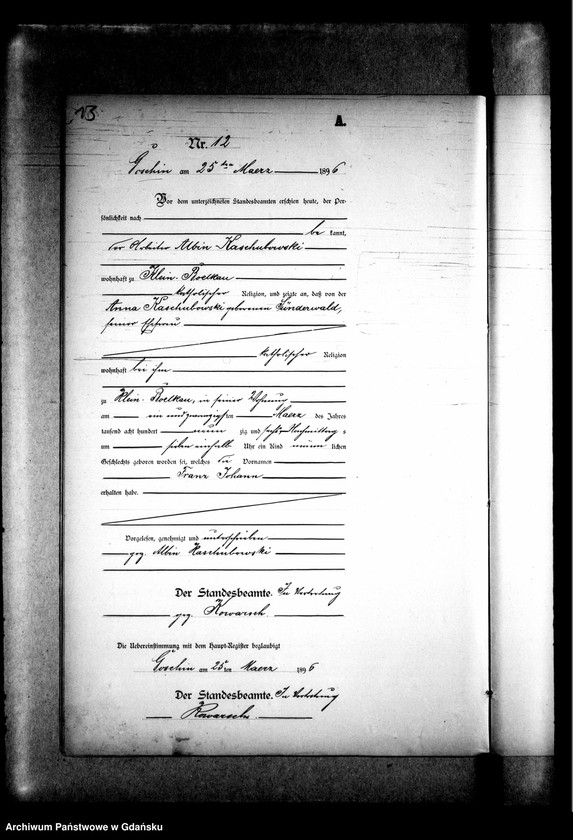 13
A.
Nr. 12
Goschin am 25ten Maerz 1896
Vor dem unterzeichneten Standesbeamten erschien heute, der Per-
sönlichkeit nach
be kannt,
der Arbeiter Albin Kaschubowski
wohnhaft zu Klein-Roelkau
katholischer Religion, und zeigte an, daß von der
Anna Kaschubowski geborenen Günderwald,
seiner Ehefrau
katholischer Religion
wohnhaft bei ihm
zu Klein-Roelkau, in seiner Wohnung
am ein und zwanzigsten Maerz des Jahres
tausend acht hundert neun zig und sechs Nachmittag s
um sieben einhalb Uhr ein Kind männ lichen
Geschlechts geboren worden sei, welches die Vornamen
Franz Johann
erhalten habe.
Vorgelesen, genehmigt und unterschrieben
gez. Albin Kaschubowski
Der Standesbeamte. In Vertretung
gez. Kowarsch
Die Uebereinstimmung mit dem Haupt-Register beglaubigt
Goschin am 25ten Maerz 1896
Der Standesbeamte. In Vertretung
Kowarsch
Archiwum Państwowe w Gdańsku